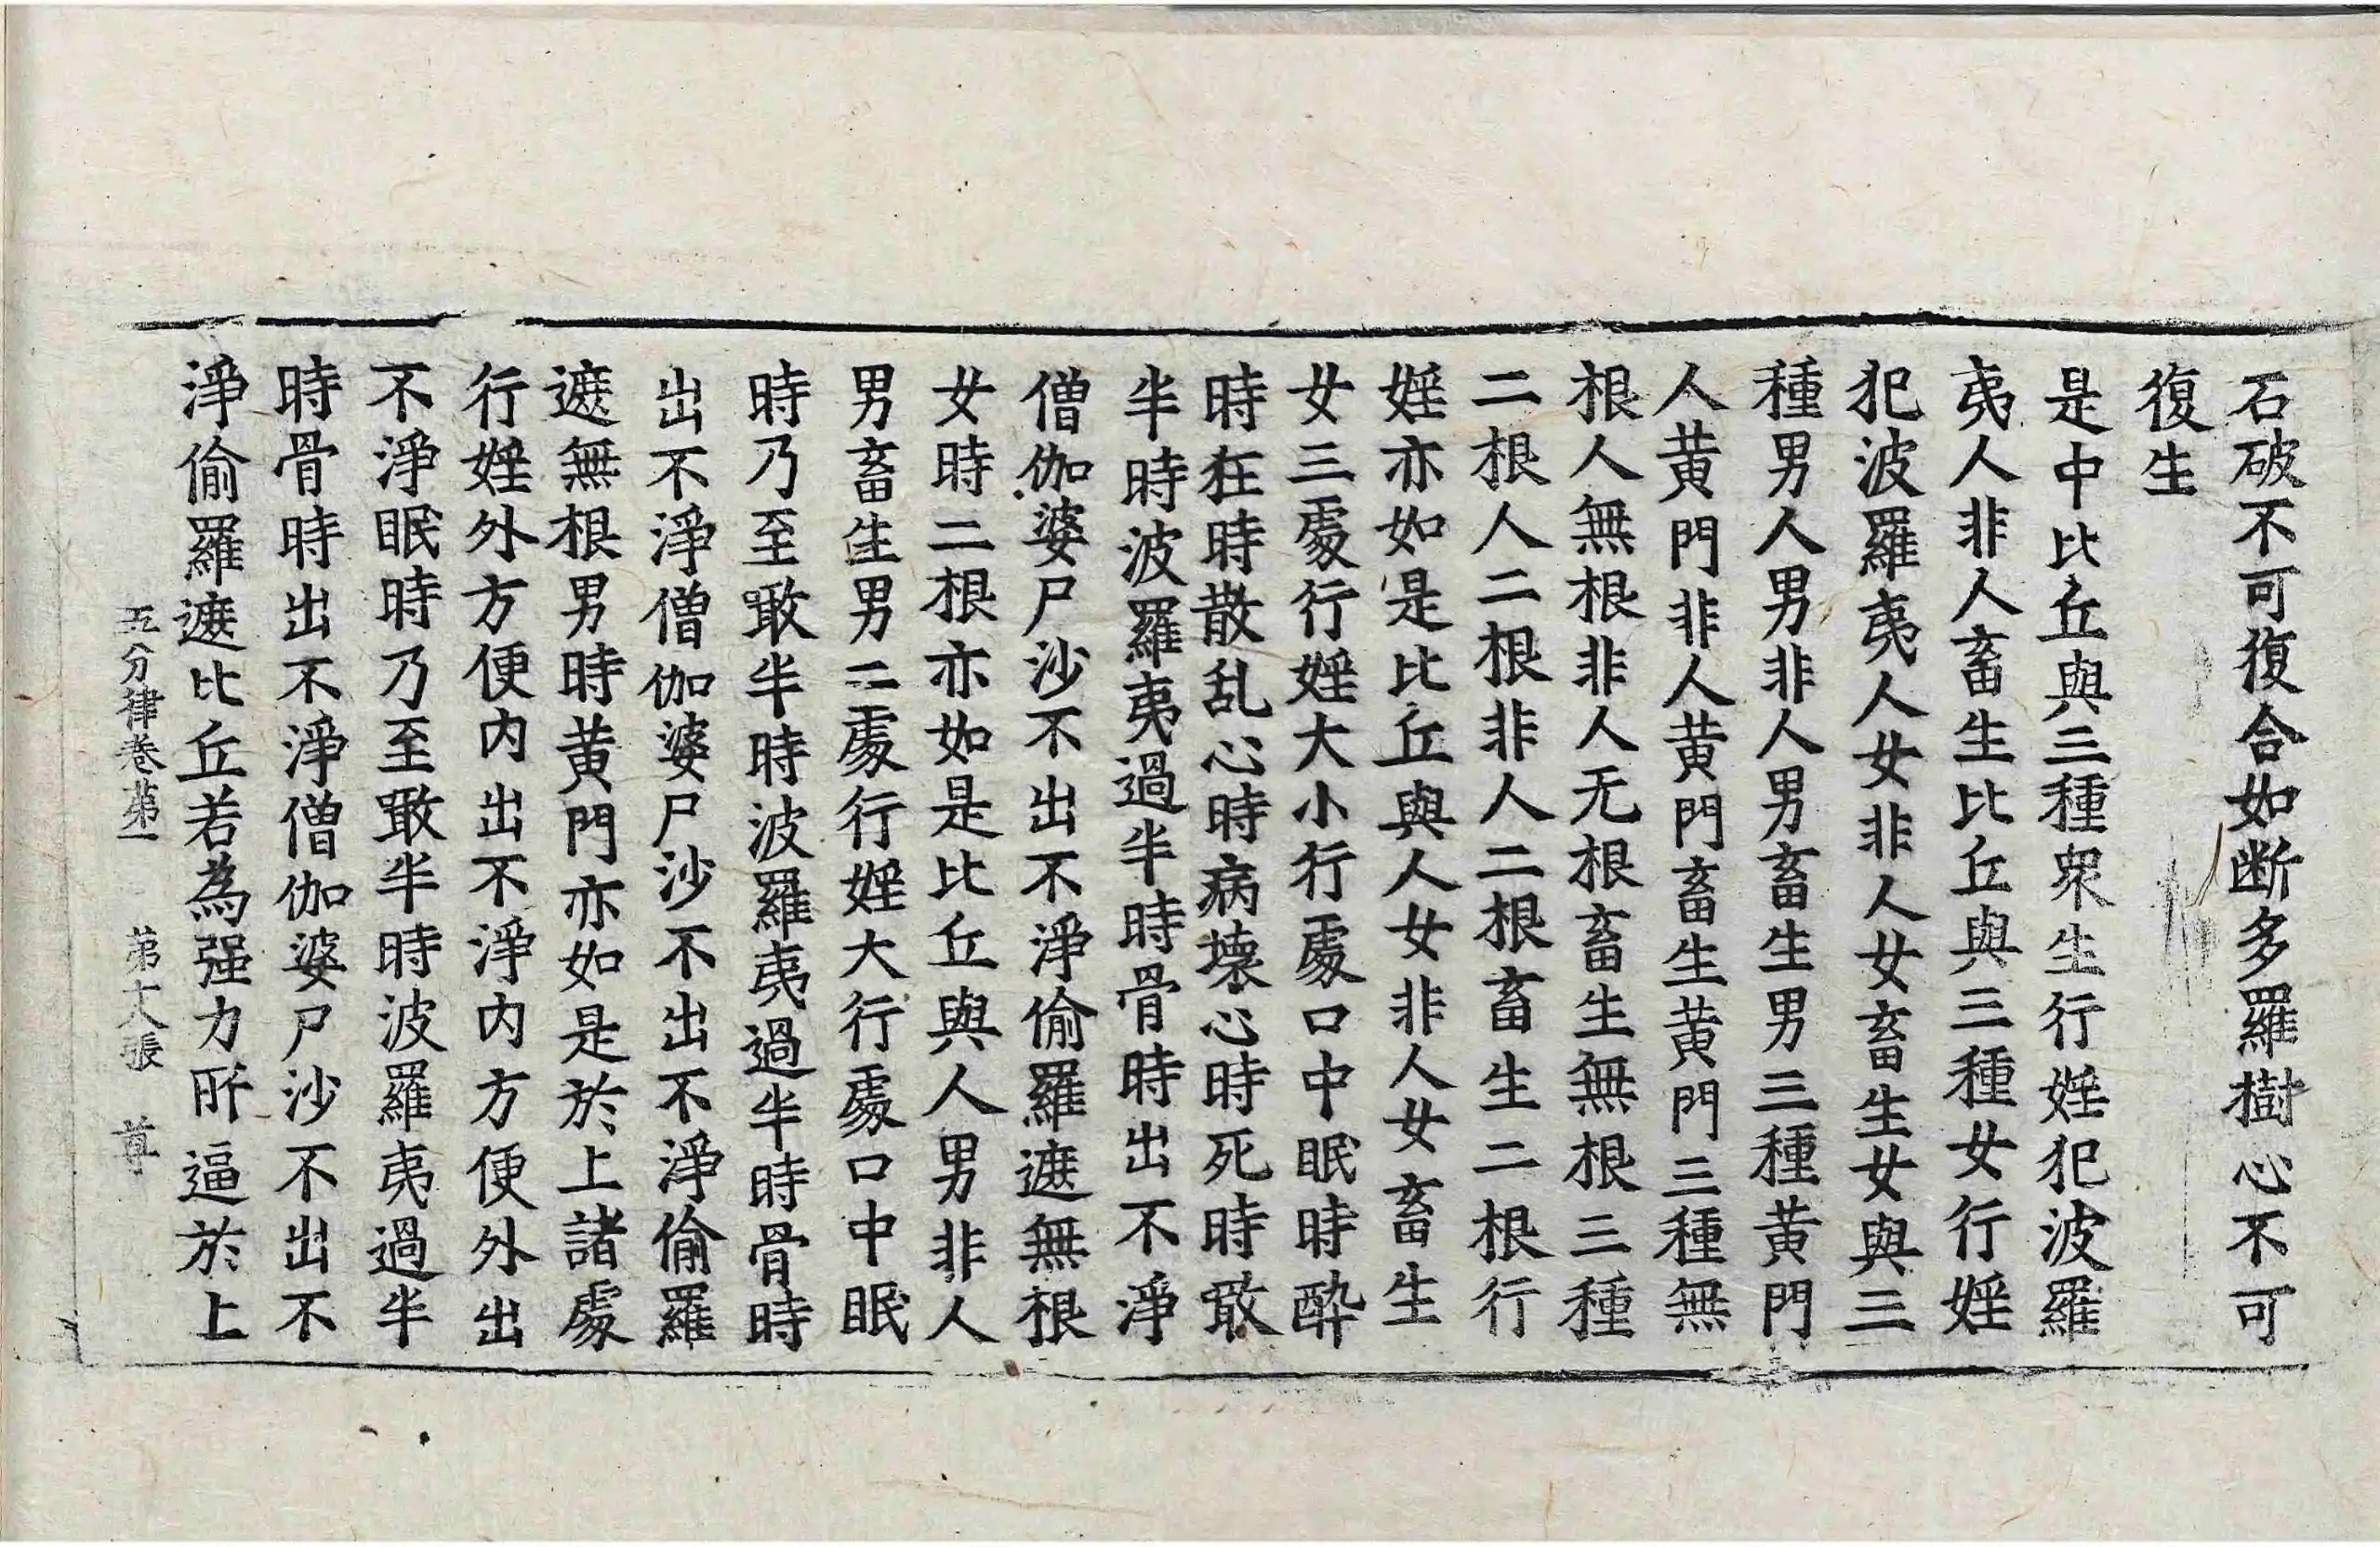 石破不可復合如断多羅樹心不可
復生
是中比丘與三種衆生行婬犯波羅
夷人非人畜生比丘與三種女行婬
犯波羅夷人女非人女畜生女與三
種男人男非人男畜生男三種黄門
人黄門非人黄門畜生黄門三種無
根人無根非人无根畜生無根三種
二根人二根非人二根畜生二根行
婬亦如是比丘與人女非人女畜生
女三處行婬大小行處口中眠時酔
時狂時散乱心時病壊心時死時噉
半時波羅夷過半時骨時出不淨
僧伽婆尸沙不出不淨偷羅遮無根
女時二根亦如是比丘與人男非人
男畜生男二處行婬大行處口中眠
時乃至噉半時波羅夷過半時骨時
出不淨僧伽婆尸沙不出不淨偷羅
遮無根男時黄門亦如是於上諸處
行婬外方便内出不淨内方便外出
不淨眠時乃至噉半時波羅夷過半
時骨時出不淨僧伽婆尸沙不出不
淨偷羅遮比丘若為强力所逼於上
五分律卷第一 第六張 尊